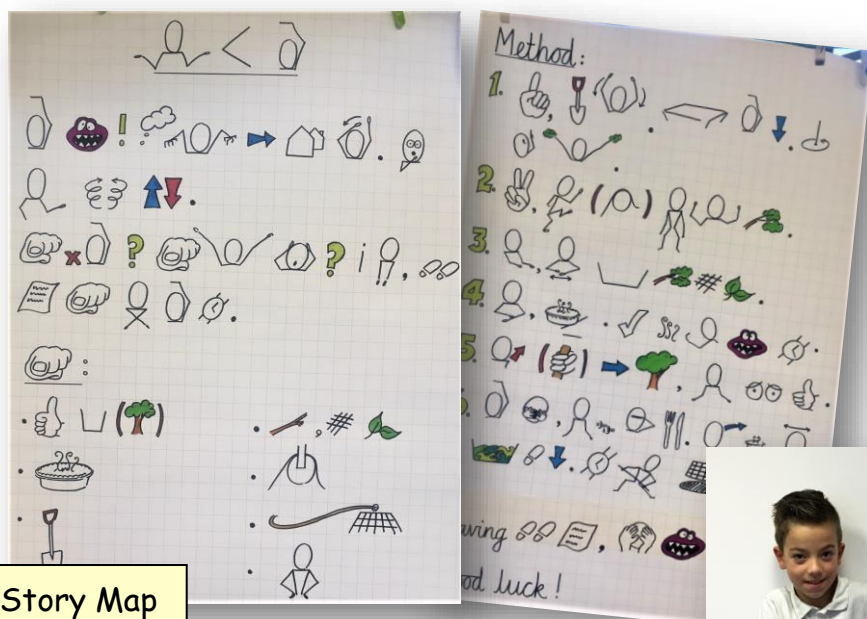 Method:
1.
2.
3.
4.
5.
aving
od luck!
Story Map